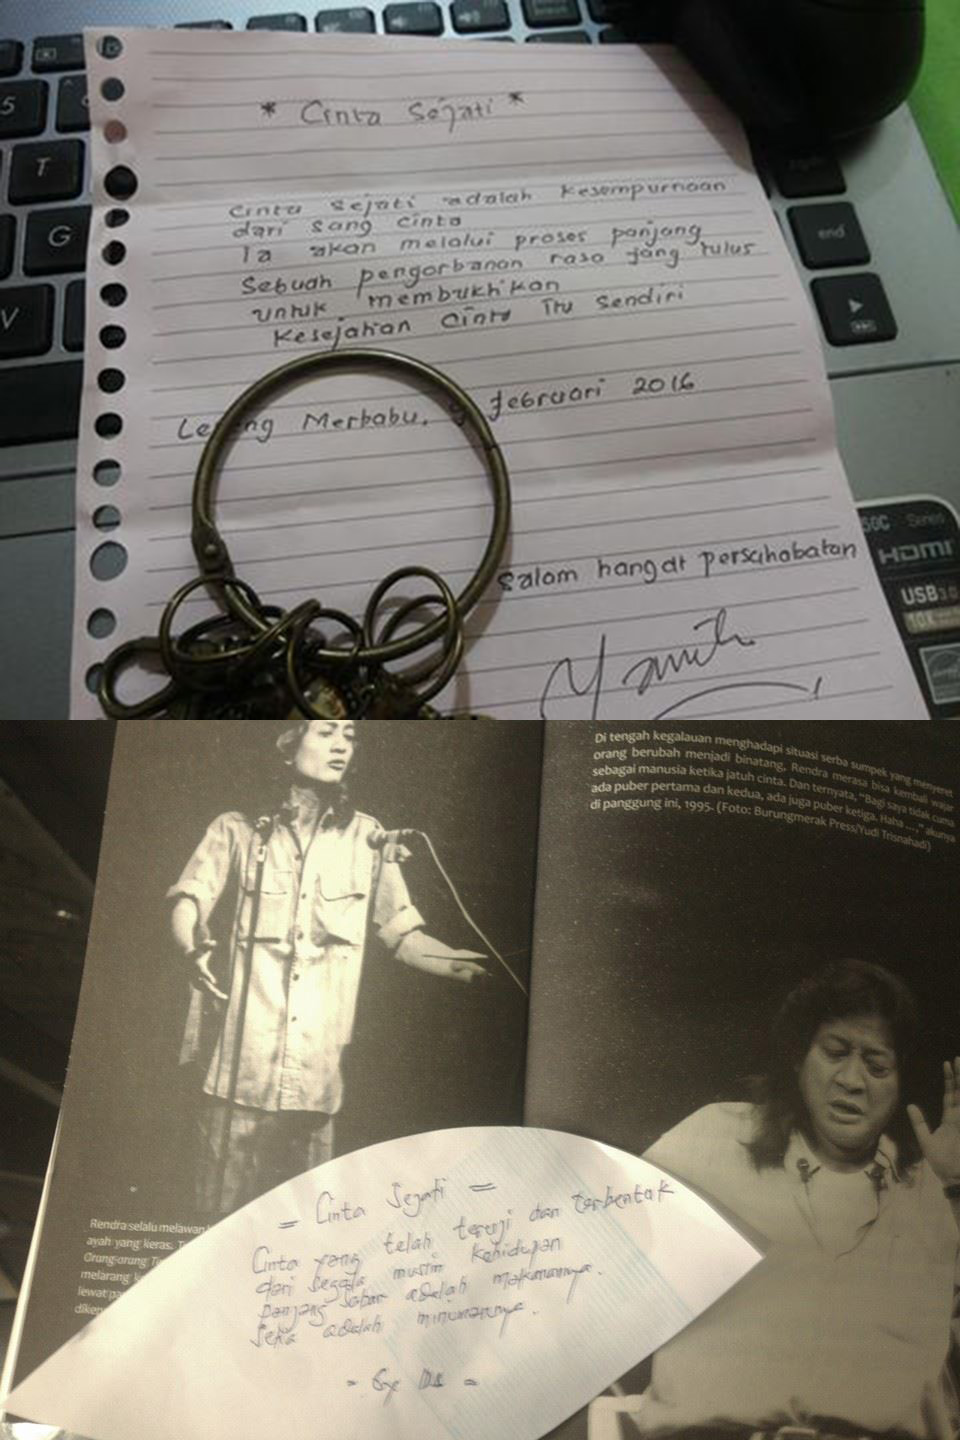 * Cinta Sejati *
Cinta sejati adalah kesempurnaan
dari sang cinta
Ia akan melalui proses panjang
Sebuah pengorbanan rasa yang tulus
untuk membuktikan
Kesejatian Cinta Itu Sendiri
Merbabu, februari 2016
salam hangat persahabatan
T
G
V
5
end
50C Series
HDMI
USB 3.0
Di tengah kegalauan menghadapi situasi serba sumpek yang menyeret
orang berubah menjadi binatang, Rendra merasa bisa kembali wajar
sebagai manusia ketika jatuh cinta. Dan ternyata, "Bagi saya tidak cuma
ada puber pertama dan kedua, ada juga puber ketiga. Haha ...," akunya
di panggung ini, 1995. (Foto: Burungmerak Press/Yudi Trisnahadi)
Rendra selalu melawan
ayah yang keras.
Orang-orang
melarang
lewat
= Cinta Sejati =
Cinta yang telah teruji dan terbentak
dari segala musim kehidupan
panjang sabar adalah makanannya.
Setia adalah minumannya.